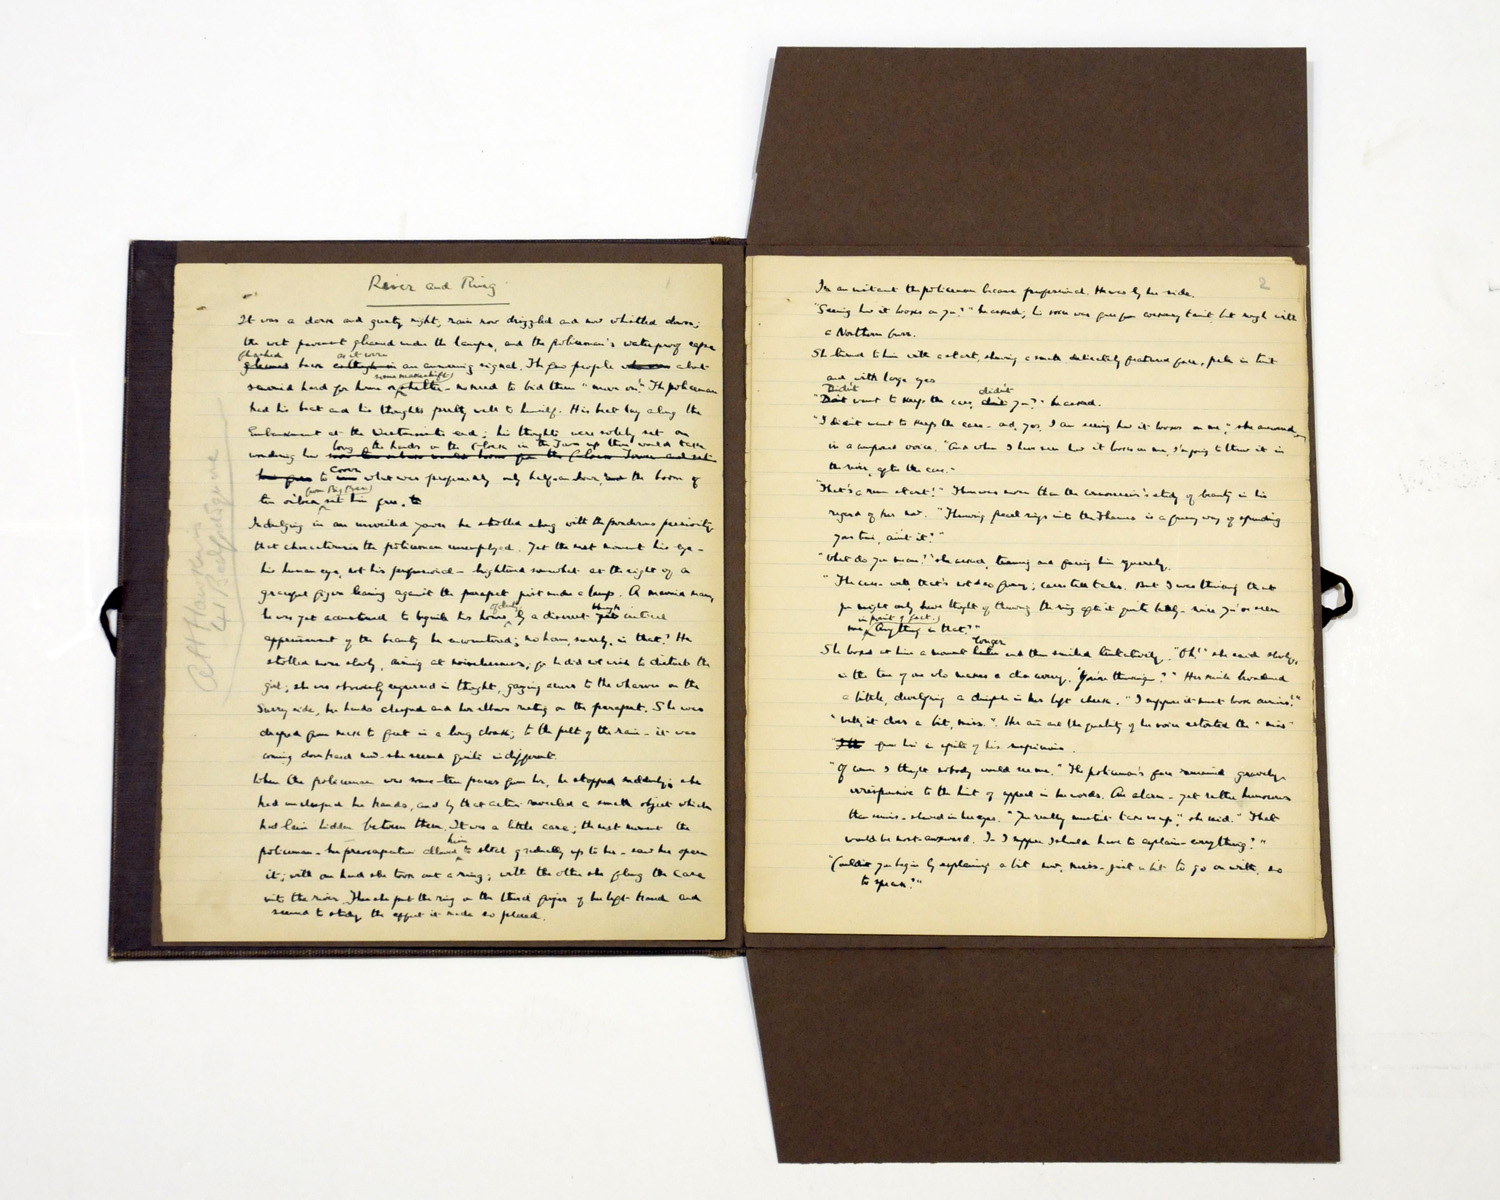 River and Ring
It was a dark and gusty night, rain now drizzled and now whistled down;
the wet pavement gleamed under the lamps, and the policeman's waterproof cape
flashed as it were
gleamed from an unmeaning signal. The few people about
some makeshift
scurried hard for home or shelter – no need to bid them "move on". The policeman
had his beat and his thoughts pretty well to himself. His beat lay along the
Embankment at the Westminster end; his thoughts were solely set on
long the hands on the Clock in the Tower up there would take
wondering how
cover
to what was properly only half-an-hour, and the boom of
(from Big Ben)
ten o'clock set him free.
Indulging in an unveiled yawn he strolled along with the ponderous passivity
that characterises the policeman unemployed. Yet the next moment his eye –
his human eye, not his professional – brightened somewhat at the sight of a
graceful figure leaning against the parapet just under a lamp. A married man,
of duty though
he was yet accustomed to beguile his hours by a discreet critical
appraisement of the beauty he encountered; no harm, surely, in that? He
strolled more slowly, aiming at noiselessness, for he did not wish to disturb the
girl; she was obviously engrossed in thought, gazing across to the wharves on the
Surrey side, her hands clasped and her elbows resting on the parapet. She was
draped from neck to feet in a long cloak; to the pelt of the rain – it was
coming down hard now – she seemed quite indifferent.
When the policeman was some ten paces from her, he stopped suddenly; she
had unclasped her hands, and by that action revealed a small object which
had lain hidden between them. It was a little case; the next moment the
him
policeman – her preoccupation allowed to steal gradually up to her – saw her open
it; with one hand she took out a ring; with the other she flung the case
into the river. Then she put the ring on the third finger of her left hand and
seemed to study the effect it made so placed.
A H Hawkins
41 Bedford Square
2
In an instant the policeman became professional. He was by her side.
"Seeing how it looks on you?" he asked; his voice was free from accusing taint, but rough with
a Northern burr.
She turned to him with a start, showing a small delicately featured face, pale in tint
and with large eyes
Didn't didn't
"Don't want to keep the case, you?" he asked.
"I didn't want to keep the case – and, yes, I am seeing how it looks on me," she answered
in a composed voice. "And when I have seen how it looks on me, I'm going to throw it in
the river, after the case."
"That's a rum start!" There was more than the connoisseur's study of beauty in his
regard of her now. "Throwing pearl rings into the Thames is a funny way of spending
your time, ain't it?"
"What do you mean?" she asked, turning and facing him squarely.
"The case – well, that's not so funny; cases tell tales. But I was thinking that
you might only have thought of throwing the ring after it quite lately – since you've seen
in point of fact.)
me, Anything in that?"
longer
She looked at him a moment and then smiled tentatively. "Oh!" she said slowly,
in the tone of one who makes a discovery. "You're thinking?" Her smile broadened
a little, developing a dimple in her left cheek. "I suppose it must look curious!"
"Well, it does a bit, miss." Her air and the quality of her voice extorted the "miss"
from him in spite of his suspicions.
"Of course I thought nobody would see me." The policeman's face remained gravely
irresponsive to the hint of appeal in her words. An alarm – yet rather humorous
than serious – showed in her eyes. "You really mustn't take me up," she said. "That
would be most awkward. For I suppose I should have to explain – everything?"
"Couldn't you begin by explaining a bit now, miss – just a bit to go on with, so
to speak?"